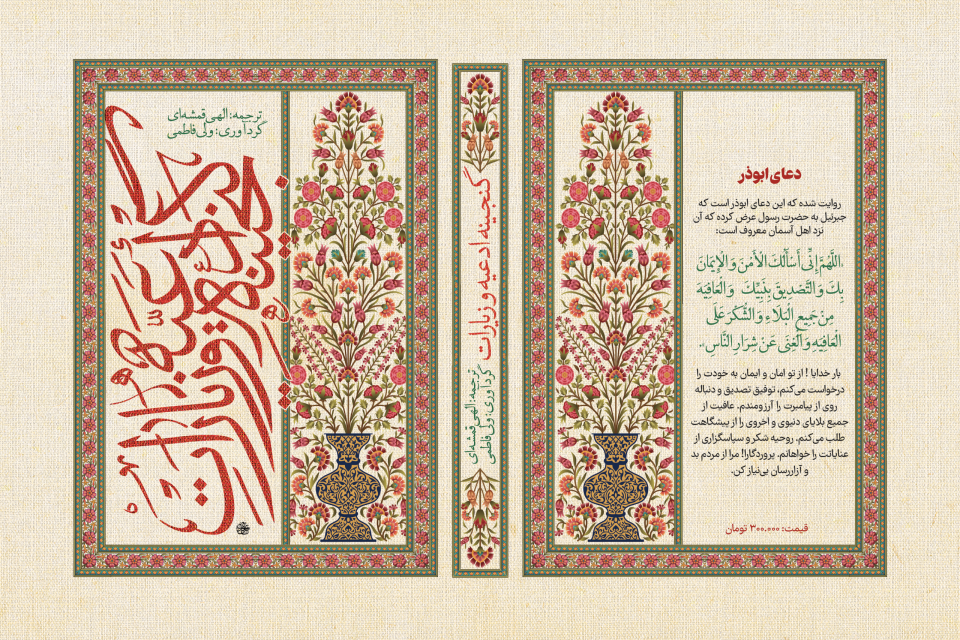 ترجمه: الهی قمشه‌ای
گردآوری: ولی فاطمی
گنجینه ادعیه و زیارات
گنجینه ادعیه و زیارات
ترجمه: الهی قمشه‌ای
گردآوری: ولی فاطمی
دعای ابوذر
روایت شده که این دعای ابوذر است که
جبرئیل به حضرت رسول عرض کرده که آن
نزد اهل آسمان معروف است:
اَللَّهُمَّ إِنِّی أَسْأَلُكَ الأَمْنَ وَ الْإِیمَانَ
بِكَ وَ التَّصْدِیقَ بِنَبِیِّكَ وَ الْعَافِیَه
مِنْ جَمِیعِ الْبَلَاءِ وَ الشُّكْرَ عَلَى
الْعَافِیَهِ وَ الْغِنَى عَنْ شِرَارِ النَّاسِ.
بار خدایا ! از تو امان و ایمان به خودت را
درخواست می‌کنم، توفیق تصدیق و دنباله
روی از پیامبرت را آرزومندم. عافیت از
جمیع بلایای دنیوی و اخروی را از پیشگاهت
طلب می‌کنم. روحیه شکر و سپاسگزاری از
عنایاتت را خواهانم. پروردگارا! مرا از مردم بد
و آزاررسان بی‌نیاز کن.
قیمت: ۳۰۰.۰۰۰ تومان